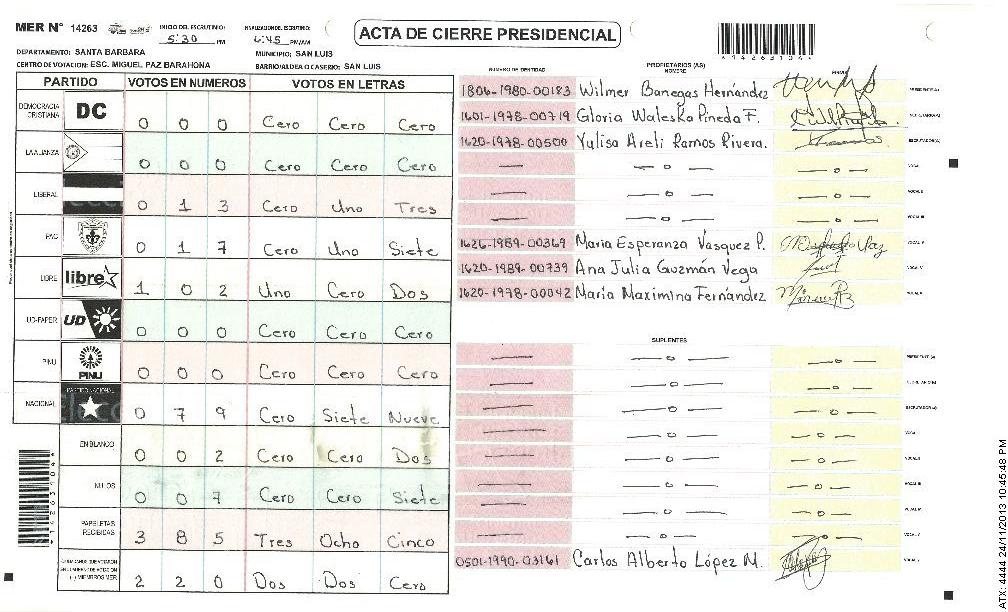 MER N° 14263
INICIO DEL ESCRUTINIO: 5:30 PM
FINALIZACION DEL ESCRUTINIO: 6:45 PM/AM
ACTA DE CIERRE PRESIDENCIAL
*14263104*
DEPARTAMENTO: SANTA BARBARA
MUNICIPIO: SAN LUIS
CENTRO DE VOTACION: ESC. MIGUEL PAZ BARAHONA
BARRIO/ALDEA O CASERIO: SAN LUIS
PARTIDO VOTOS EN NUMEROS VOTOS EN LETRAS
DEMOCRACIA CRISTIANA DC 0 0 0 Cero Cero Cero
LA ALIANZA 0 0 0 Cero Cero Cero
LIBERAL 0 1 3 Cero Uno Tres
PAC 0 1 7 Cero Uno Siete
LIBRE libre 1 0 2 Uno Cero Dos
UD-FAPER UD 0 0 0 Cero Cero Cero
PINU PINU 0 0 0 Cero Cero Cero
NACIONAL PARTIDO NACIONAL 0 7 9 Cero Siete Nueve
EN BLANCO 0 0 2 Cero Cero Dos
NULOS 0 0 7 Cero Cero Siete
PAPELETAS RECIBIDAS 3 8 5 Tres Ocho Cinco
CIUDADANOS QUE VOTARON EN CUADERNO DE VOTACION (+) MIEMBROS MER 2 2 0 Dos Dos Cero
NUMERO DE IDENTIDAD
PROPIETARIOS (AS)
NOMBRE
FIRMA
1804-1980-00183 Wilmer Banegas Hernández PRESIDENTE(A)
1601-1978-00719 Gloria Waleska Pineda F. SECRETARIO(A)
1620-1978-00500 Yulisa Areli Ramos Rivera. ESCRUTADOR(A)
— — o — — o — VOCAL I
— — o — — o — VOCAL II
— — o — — o — VOCAL III
1626-1989-00369 Maria Esperanza Vasquez P. VOCAL IV
1620-1989-00739 Ana Julia Guzmán Vega VOCAL V
1620-1978-00042 María Maximina Fernández
SUPLENTES
— — o — — o — PRESIDENTE (A)
— — o — — o — SECRETARIO(A)
— — o — — o — ESCRUTADOR(A)
— — o — — o — VOCAL I
— — o — — o — VOCAL II
— — o — — o — VOCAL III
— — o — — o — VOCAL IV
— — o — — o — VOCAL V
0501-1990-03161 Carlos Alberto López M.
*14263104*
ATX: 4444 24/11/2013 10:45:48 PM